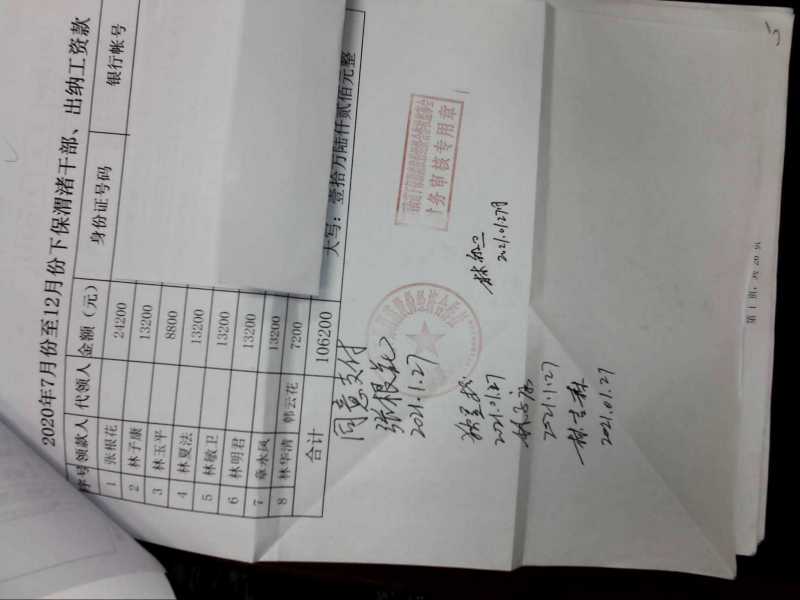 2020年7月份至12月份下保渭渚干部、出纳工资款
序号 领款人 代领人 金额（元） 身份证号码 银行帐号
1 张根花 24200
2 林子康 13200
3 林玉平 8800
4 林夏法 13200
5 林敏卫 13200
6 林明君 13200
7 章水凤 13200
8 林华清 韩云花 7200
合计 106200 大写：壹拾万陆仟贰佰元整
同意支付
张根花
2021.1.27
2021.01.27
2021.1.27
2021.01.27
务审核专用章
第 1 页，共 20 页
5